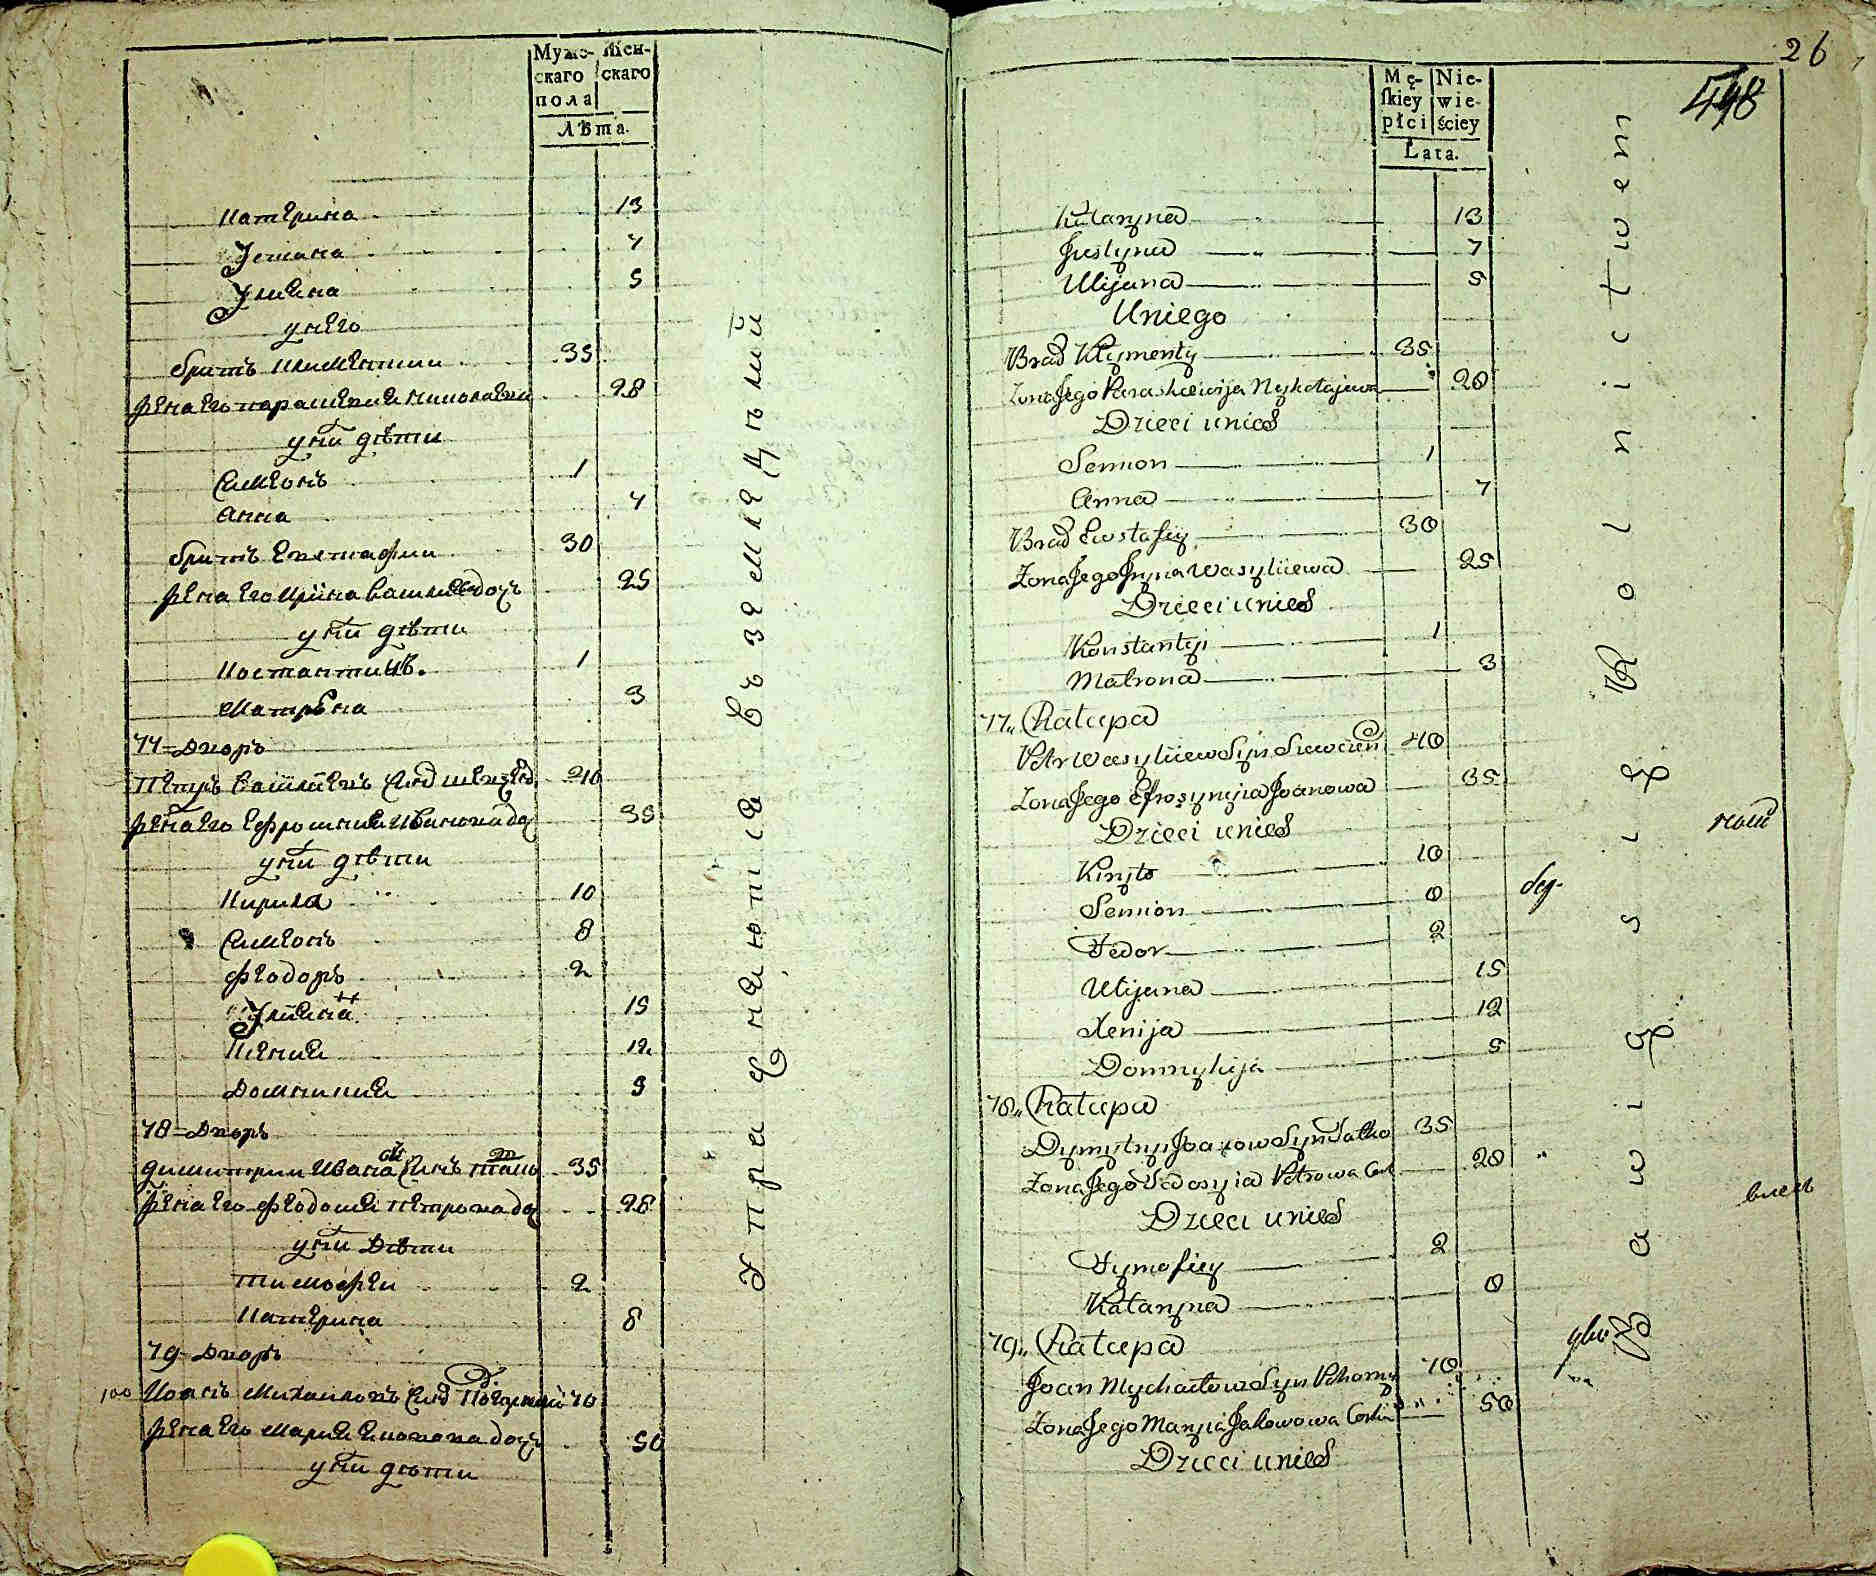 Мужс- Жен-
скаго скаго
пола
Лѣта.
Катерина 13
Устина 7
Улиана 5
у него
братъ Климентии 35
жена его параскевиа николаева 28
у них дѣти
Симеонъ 1
Анна 7
братъ Евстафии 30
жена его Ирина василиева доч 25
у них дѣти
Костантинъ. 1
Матрена 3
77 = Дворъ
Петръ Василиевъ Син 40
жена его Ефросиниа Иванова доч 35
у них дѣти
Кирила 10
Симеонъ 8
Феодоръ 2
Улиана 15
Ксениа 12
Домникиа 5
78 = Дворъ
димитрии Иванов Синъ 35
жена его Феодосиа петрова доч 28
у них Дѣти
Тимофеи 2
Катерина 8
79 Дворъ
100 Иоанъ Михаиловъ Син 70
жена его Мариа Яковова дочь 50
у них дѣти
Упражнаются въ земледѣлий
26
448
Mę- Nie-
skiey wie-
płci ściey
Lata.
Kataryna 13
Justyna 7
Ulijana 5
Uniego
Brad Klymenty 35
Zona Jego Paraskiewija Nykołajewa 28
Dzieci unich
Semion 1
Anna 7
Brad Ewstafiy 30
Zona Jego Iryna Wasyliiewa 25
Dzieci unich
Konstantyi 1
Matrona 3
77„ Chatupa
Petr Wasyliiew Syn Szewczen 40
Zona Jego Efrosynyia Joanowa 35
Dzieci unich
Kiryło 10
Semion 8
Fedor 2
Ulijana 15
Xenija 12
Domnykija 5
78„ Chatupa
Dymytryi Joanow Syn Satko 35
Zona Jego Fedosyia Petrowa Cor 28
Dzieci unich
Tymofiey 2
Kataryna 8
79„ Chatupa
Joan Mychaiłow Syn 70
Zona Jego Maryia Jakowowa Corka 50
Dzieci unich
Bawią się Rolnictwem